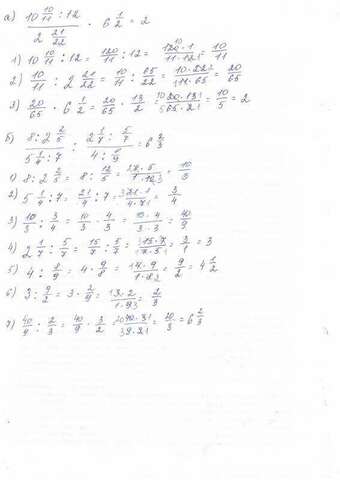 а) (10 10/11 : 12)/(2 21/22) · 6 1/2 = 2
1) 10 10/11 : 12 = 120/11 : 12 = 120·1/11·12 = 10/11
2) 10/11 : 2 21/22 = 10/11 : 65/22 = 10·22/11·65 = 20/65
3) 20/65 · 6 1/2 = 20/65 · 13/2 = 20·13/65·2 = 10/5 = 2
б) (8 : 2 2/5)/(5 1/4 : 7) : (2 1/7 : 5/7)/(4 : 8/9) = 6 2/3
1) 8 : 2 2/5 = 8 : 12/5 = = 10/3
2) 5 1/4 : 7 = 21/4 : 7 = 21·1/4·7 = 3/4
3) 10/3 : 3/4 = 10/3 · 4/3 = 10·4/3·3 = 40/9
4) 2 1/7 : 5/7 = 15/7 : 5/7 = 15·7/7·5 = 3/1 = 3
5) 4 : 8/9 = 4 · 9/8 = 4·9/1·8 = 9/2 = 4 1/2
6) 3 : 9/2 = 3 · 2/9 = 3·2/1·9 = 2/3
7) 40/9 : 2/3 = 40/9 · 3/2 = 40·3/9·2 = 20/3 = 6 2/3